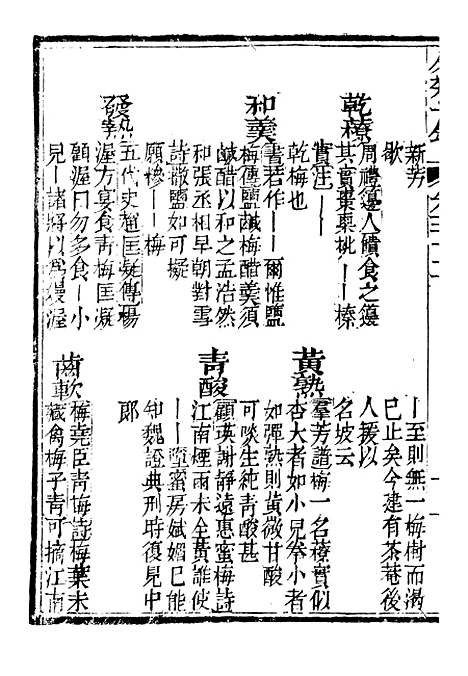 新芳
歇
乾䕩
周禮籩人饋食之籩
其實棗㮚桃——榛
實注——
乾梅也
和羹
書若作——爾惟鹽
梅傳鹽鹹梅醋羹須
鹹醋以和之孟浩然
和張丞相早朝對雪
詩撒鹽如可擬
願糝—梅
發熱
五代史趙匡凝傳楊
渥方宴食青梅匡凝
顧渥曰勿多食—小
兒——諸將以爲嫚渥
—至則無一梅樹而渴
已止矣今建有茶菴後
人援以
名坡云
黃熟
羣芳譜梅一名䕩實似
杏大者如小兒拳小者
如彈熟則黃微甘酸
可啖生純青酸甚
青酸
顧瑛謝靜遠惠蜜梅詩
江南煙雨未全黃誰使
——墮蜜房斌媚已能
知魏證典刑時復見中
郎
齒軟
梅堯臣青梅詩梅葉未
藏禽梅子青可摘江南